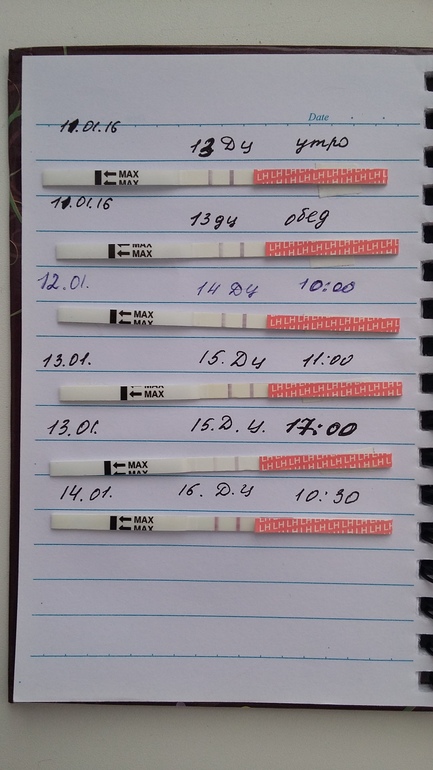 Date
11.01.16
13 ДЦ утро
MAX
MAX
LHLHLHLHLHLHLHLH
11.01.16
13 дц обед
MAX
MAX
LHLHLHLHLHLHLHLH
12.01. 14 ДЦ 10:00
MAX
MAX
LHLHLHLHLHLHLHLH
13.01. 15. Дц 11:00
MAX
MAX
LHLHLHLHLHLHLHLH
13.01. 15. Д. Ц. 17:00
MAX
MAX
LHLHLHLHLHLHLHLH
14.01. 16. Д.Ц 10:30
MAX
MAX
LHLHLHLHLHLHLHLH